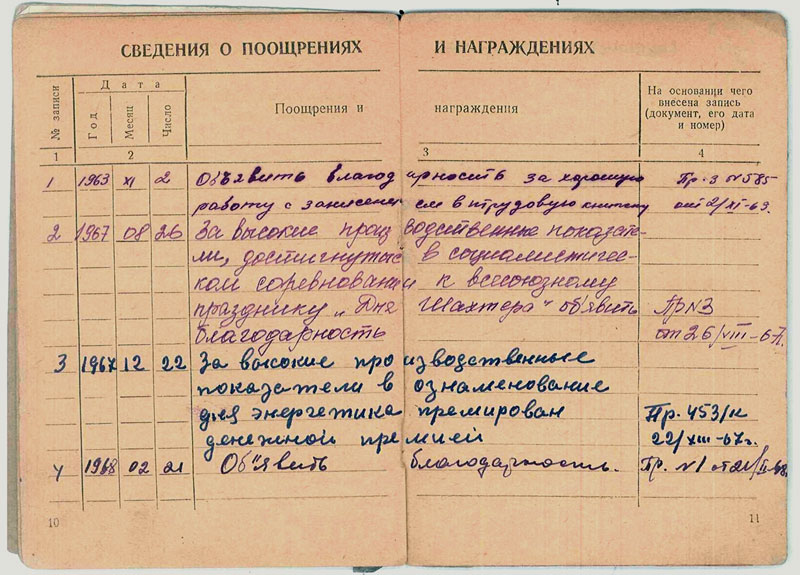 СВЕДЕНИЯ О ПООЩРЕНИЯХ И НАГРАЖДЕНИЯХ
№ записи
Дата
Год
Месяц
Число
Поощрения и награждения
На основании чего
внесена запись
(документ, его дата
и номер)
1 2 3 4
1 1963 XI 2 Объявить благодарность за хорошую Пр-з №585
работу с занесением в трудовую книжку от 2/XI-63.
2 1967 08 26 За высокие производственные показате-
ли, достигнутые в социалистичес-
ком соревновании к всесоюзному
празднику „Дня Шахтера" объявить Пр№3
благодарность от 26/VIII-67г.
3 1967 12 22 За высокие производственные
показатели в ознаменование
дня энергетика премирован Пр. 453/к
денежной премией 22/XIII-67г.
4 1968 02 21 Об"явить благодарность. Пр. №1 от 21/II-68г.
10
11